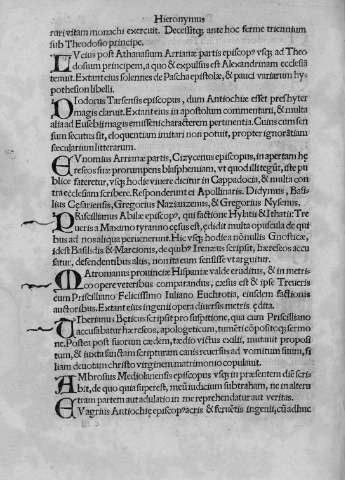 Hieronymus
rur, vitam monachi exercuit. Decessitq; ante hoc ferme triennium
sub Theodosio principe.
LVcius post Athanasium Arrianæ partis episcopꝰ vsq; ad Theo
dosium principem, a quo & expulsus est Alexandrinam ecclesiã
tenuit. Extant eius solennes de Pascha epistolæ, & pauci variarum hy
pothesion libelli.
DIodorus Tarsensis episcopus, dum Antiochiæ esset presbyter
magis claruit. Extant eius in apostolum commentarii, & multa
alia ad Eusebii magis emisseni characterem pertinentia. Cuius cum sen
sum secutus sit, eloquentiam imitari non potuit, propter ignorãtiam
secularium litterarum.
EVnomius Arrianæ partis, Cizycenus episcopus, in apertam hę
reseos suæ prorumpens blasphemiam, vt quod illi tegūt, iste pu
blice fateretur, vsq; hodie viuere dicitur in Cappadocia, & multa con
tra ecclesiam scribere. Responderunt ei Apollinaris. Didymus, Basi-
lius Cęsariensis, Gregorius Nazianzenus, & Gregorius Nysenus.
PRiscillianus Abilæ episcopꝰ, qui factione Hylatii & Ithatii: Tre
ueris a Maximo tyranno cęsus est, edidit multa opuscula de qui
bus ad nos aliqua peruenerunt. Hic vsq; hodie a nōnullis Gnosticæ,
idest Basilidis & Marcionis, de quibꝰ Ireneus scripsit, hæreseos accu
satur, defendentibus aliis, non ita eum sensisse vt arguitur.
MAtronianus prouinciæ Hispaniæ valde eruditus, & in metri-
co opere veteribus comparandus, cæsus est & ipse Treueris
cum Priscilliano Felicissimo Iuliano Euchrotia, eiusdem factionis
auctoribus. Extant eius ingenii opera diuersis metris. ędita.
TIberianus Beticus scripsit pro suspitione, qua cum Priscilliano
accusabatur hæreseos, apologeticum, tumēti cōpositoq; sermo
ne. Postea post suorum cædem, tædio victus exilii, mutauit proposi
tum, & iuxta sanctam scripturam canis reuersus ad vomitum suum, fi
liam deuotam christo virginem matrimonio copulauit.
AMbrosius Mediolanensis episcopus vsq; in præsentem diē scri-
bit, de quo quia superest, meū iudicium subtraham, ne in alteru
tram partem aut adulatio in me reprehendatur aut veritas.
EVagrius Antiochię episcopꝰ acris & feruētis ingenii, cū adhuc